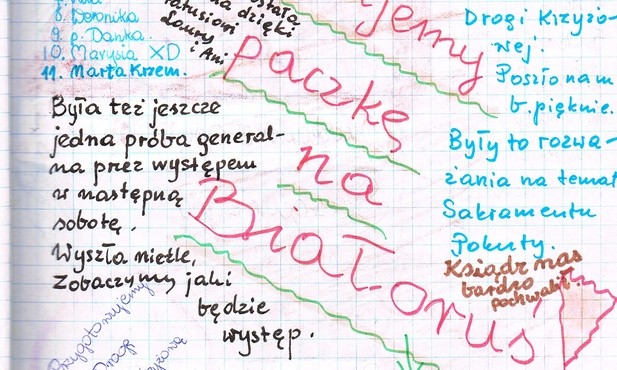 8. Weronika
9. p. Danka.
10. Marysia XD
11. Marta Krzem.
została
na dzięki
ratusiowi
Laury i Ani
Była też jeszcze
jedna próba general-
na prez występem
w następną
sobotę.
Wyszła nieźle,
Zobaczymy jaki
będzie
występ.
Przygotowujemy
Drogę
jemy
paczkę
na
Białoruś
Drogi Krzyżo-
wej.
Poszło nam
b. pięknie.
Były to rozwa-
żania na temat
Sakramentu
Pokuty.
Ksiądz nas
bardzo
pochwalił.